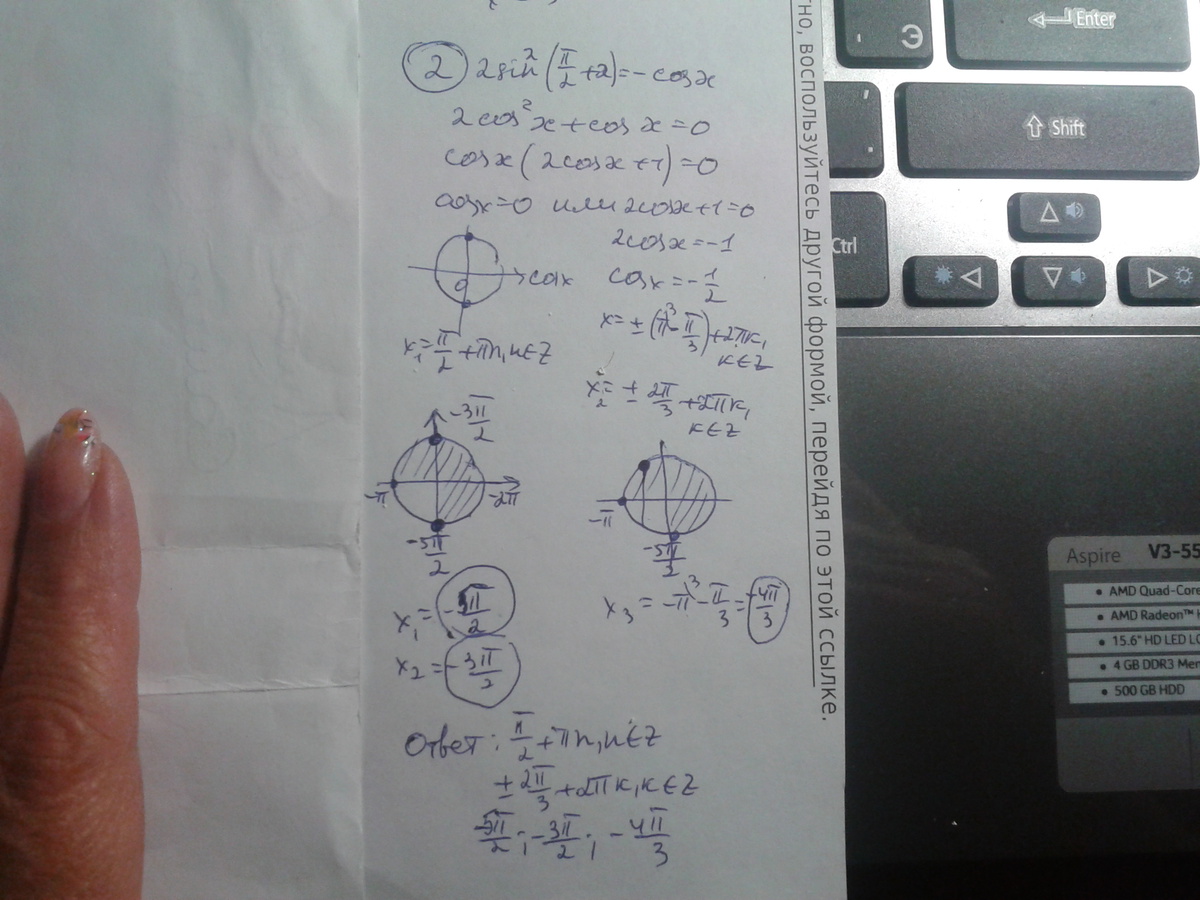 2 2sin²(π/2+2)=-cosx
2cos²x+cosx=0
cosx(2cosx+1)=0
cosx=0 или 2cosx+1=0
2cosx=-1
0 cosx
cosx=-1/2
x=±(π³-π/3)+2πk,
k∈Z
x₁=π/2+πn, n∈Z
x₂=±2π/3+2πk,
k∈Z
-3π/2
-π -2π
-5π/2
-π
-5π/2
x₁=-5π/2
x₂=-3π/2
x₃=-π³-π/3=-4π/3
Ответ: π/2+πn, n∈Z
±2π/3+2πk, k∈Z
-5π/2; -3π/2; -4π/3
тно, воспользуйтесь другой формой, перейдя по этой ссылке.
Э
Enter
Shift
Ctrl
Aspire V3-55
• AMD Quad-Core
• AMD Radeon™
• 15.6" HD LED LC
• 4 GB DDR3 Mem
• 500 GB HDD